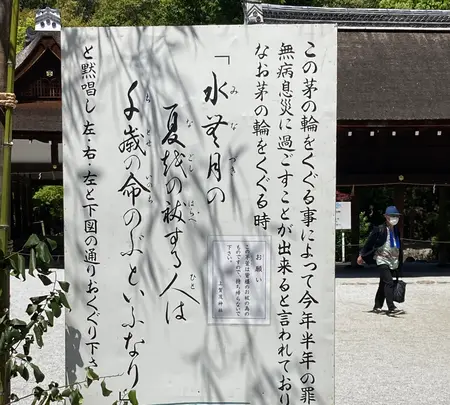 この茅の輪をくぐる事によって今年半年の罪
無病息災に過ごすことが出来ると言われており
なお茅の輪をくぐる時
「水無月の
みなづき
夏越の祓する人は
なごし はらへ ひと
千歳の命のぶといふなり」
ちとせ いのち
と黙唱し 左・右・左と下図の通りおくぐり下さ
お願い
下さい。
上賀茂神社